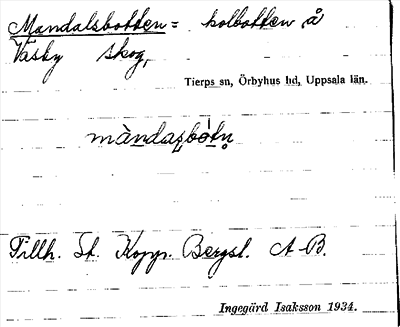 Mandalsbotten = kolbotten å
Väsby skog,
Tierps sn, Örbyhus hd, Uppsala län.
màndasbòtn̥
Tillh. St. Kopp. Bergsl. A-B.
Ingegärd Isaksson 1934.